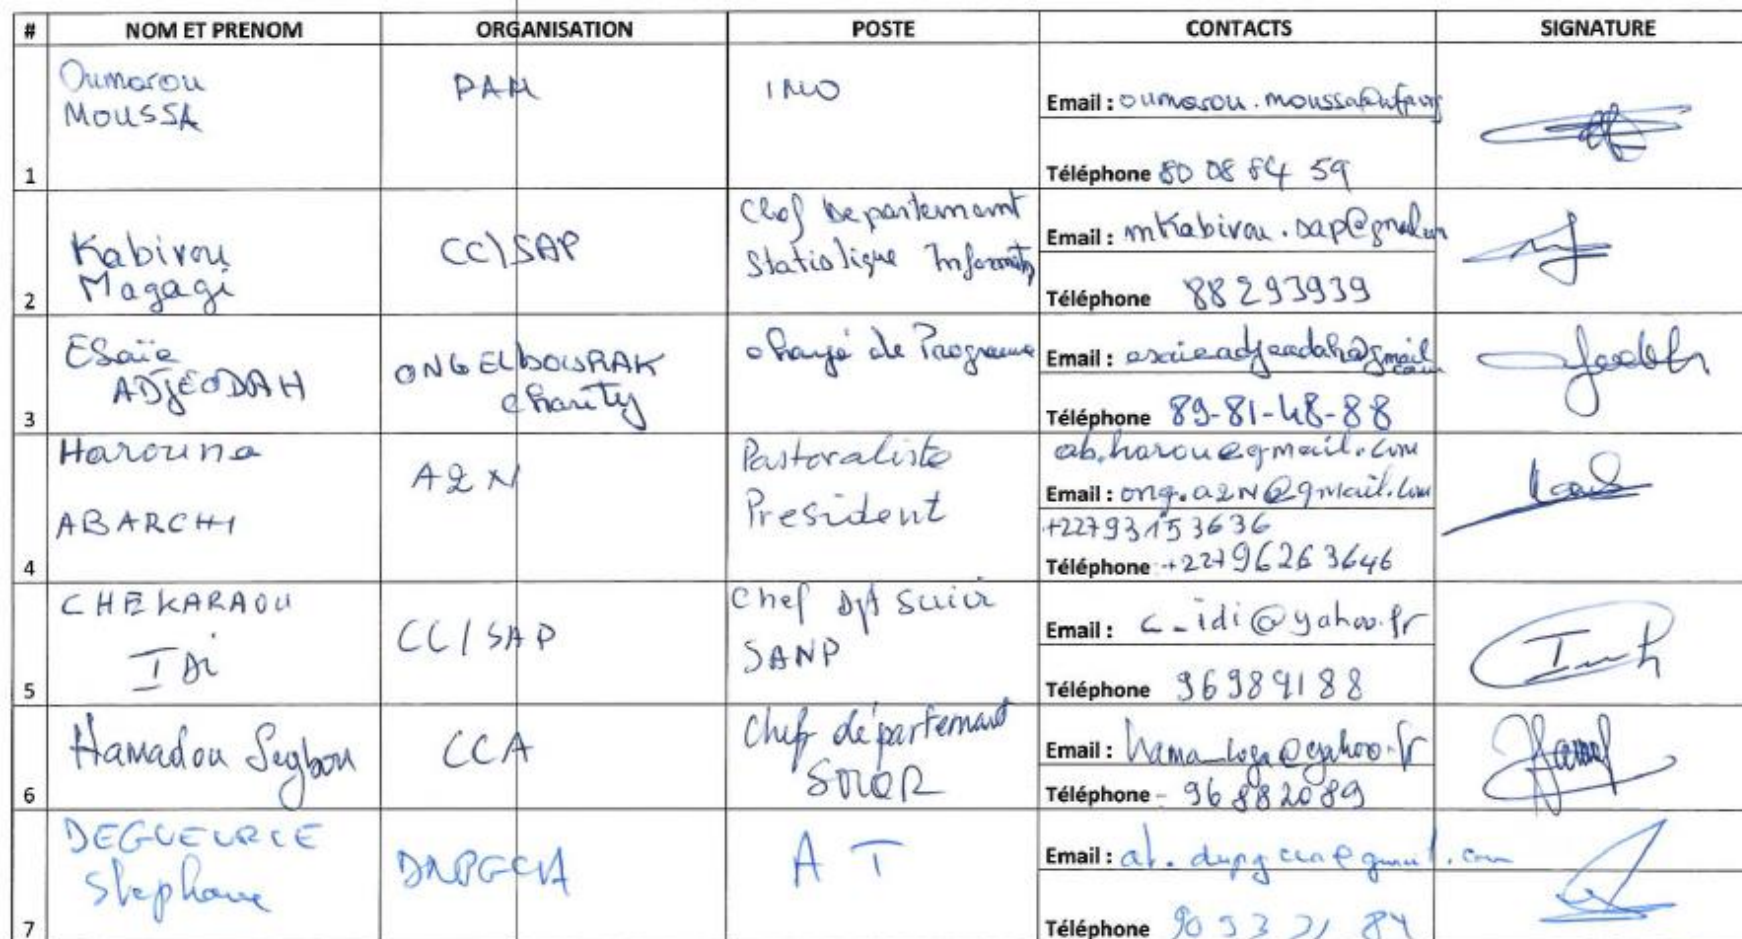 # NOM ET PRENOM ORGANISATION POSTE CONTACTS SIGNATURE
1 Oumarou MOUSSA PAM IMO
Email : oumarou.moussa@wfp.org
Téléphone 80 08 84 59
2 Kabirou Magagi CC/SAP Chef Departement Statistique
Email : mkabirou.sap@gmail.com
Téléphone 88293939
3 ESaïe ADJEODAH ONG ELBOURAK Charity chargé de Programme
Email : esaieadjeodah@gmail.com
Téléphone 89-81-48-88
4 Harouna ABARCHI A2N Pastoraliste President
ab.harou@gmail.com
Email : ong.a2N@gmail.com
+22793153636
Téléphone +22796263646
5 CHEKARAOU IDi CC/SAP Chef Dpt Suivi SANP
Email : c_idi@yahoo.fr
Téléphone 96989188
6 Hamadou Segbou CCA Chef département
Email : @yahoo.fr
Téléphone - 96882089
7 Stephane DNPGCA A T
Email :
Téléphone